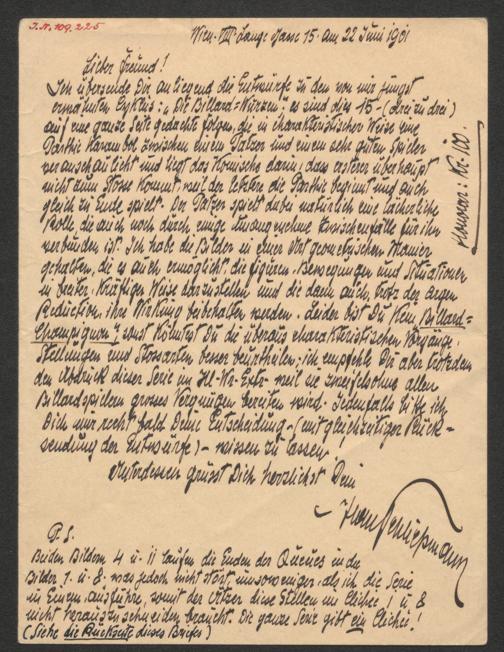 I.N. 109.225
Wien VIII Lange Gasse 15. am 22 Juni 1901
Lieber Freund!
Ich übersende Dir anliegend die Entwürfe zu den von mir jüngst
erwähnten Cyklus: „Die Billard=Wurzen": es sind dies 15 - (drei zu drei)
auf eine ganze Seite gedachte Folgen, die in charakteristischer Weise eine
Parthie Karambol zwischen einem Patzer und einem sehr guten Spieler
veranschaulicht und liegt das Komische darin, dass ersterer überhaupt
nicht zum Stoss kommt, weil der letztere die Parthie beginnt und auch
gleich zu Ende spielt. Der Patzer spielt dabei natürlich eine lächerliche
Rolle die auch noch durch einige unangenehme Zwischenfälle für ihn
verbunden ist. Ich habe die Bilder in einer Art geometrischen Manier
gehalten, die es auch ermöglicht die Figuren, Bewegungen und Situationen
in bester, kräftiger Weise darzustellen und die dann auch trotz der argen
Reduction, ihre Wirkung beibehalten werden. Leider bist Du kein „Billard=
Champignon", sonst könntest Du die überaus charakteristischen Vorgänge,
Stellungen und Stossarten besser beurtheilen; ich empfehle Dir aber trotzdem
den Abdruck dieser Serie im Ill-Wr-Extr- weil sie zweifelsohne allen
Billardspielern grosses Vergnügen bereiten wird. Jedenfalls bitte ich
Dich mir recht bald Deine Entscheidung - (mit gleichzeitiger Rück=
sendung der Entwürfe) - wissen zu lassen.
Unterdessen grüsst Dich herzlichst Dein
Hans Schließmann
Honorar: Kr. 100.
P.S.
Bei den Bildern 4 u. 11 laufen die Enden der Queues in die
Bilder 1. u. 8. was jedoch nicht stört, umsoweniger als ich die Serie
in Einem ausführe, somit der Ätzer diese Stellen im Clichée 1 u 8
nicht herauszuschneiden braucht. Die ganze Serie gibt ein Clichée!
(Siehe die Rückseite dieses Briefes)